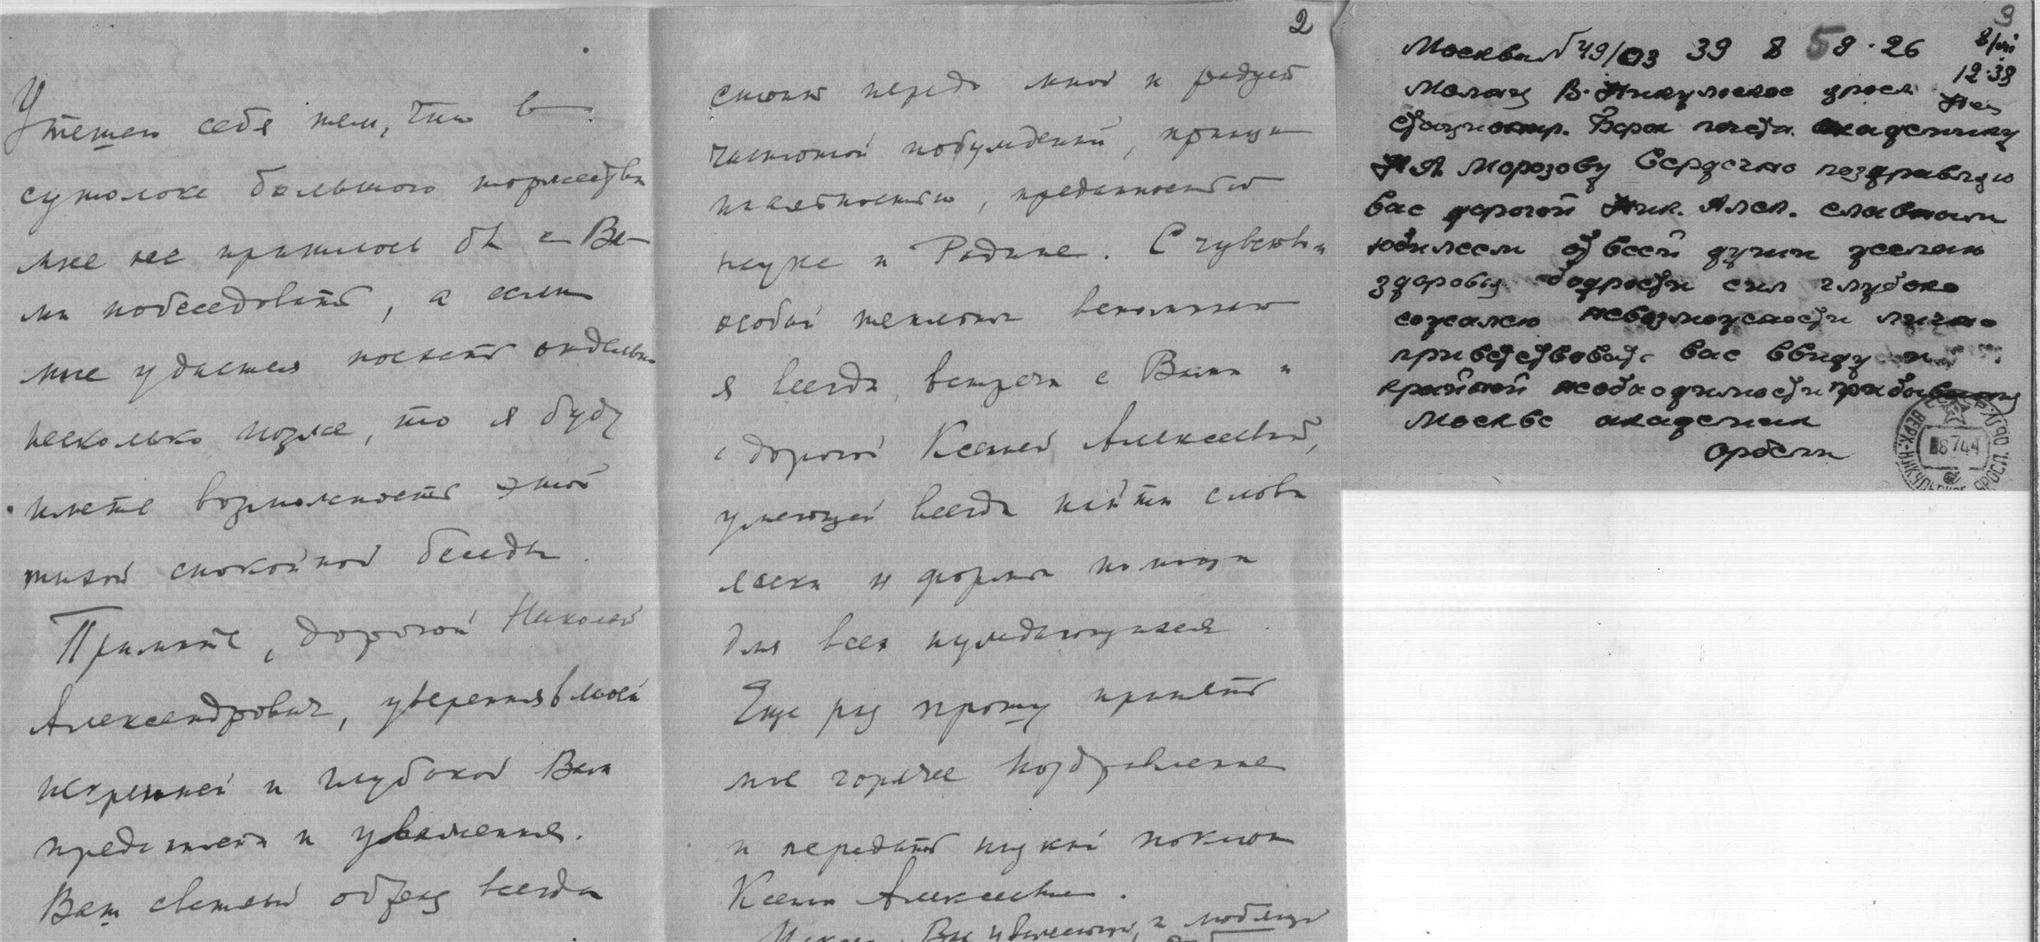 Утешаю себя тем, что в
сутолоке большого торжества
мне не пришлось бы с Ва-
ми побеседовать, а если
мне удастся поехать отдельно
несколько позже, то я буду
иметь возможность этой
тихой спокойной беседы.
Примите, дорогой Николай
Александрович, уверения в моей
искренней и глубокой Вам
преданности и уважении.
Ваш светлый образ всегда
2
стоит передо мной и радует
чистотой побуждений, принци
пиальностью, преданностью
науке и Родине. С чувством
особой теплоты вспоминаю
я всегда встречи с Вами и
с дорогой Ксенией Алексеевной,
умеющей всегда найти слова
ласки и формы помощи
для всех нуждающихся.
Еще раз прошу принять
мое горячее поздравление
и передать низкий поклон
Ксении Алексеевне.
Вас уважающий и любящий
3
Москва 49/03 39 8 58.26 8/VII
12.38
Молог В-Никульское яросл
Борок почета академику
НА Морозову Сердечно поздравляю
вас дорогой Ник. Алек. славным
юбилеем от всей души желаю
здоровья бодрости сил глубоко
сожалею невозможности лично
приветствовать вас ввиду
крайней необходимости пребывания
Москве академик
Орбели
8744
ВЕРХ-НИКУЛЬСКОЕ ЯРОСЛ. ОБЛ.